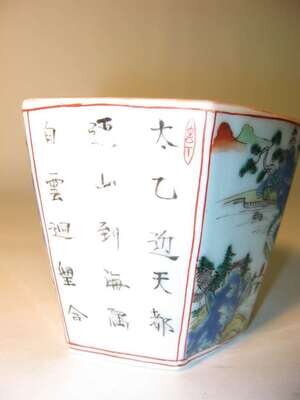 太乙近天都
連山到海隅
白雲迴望合